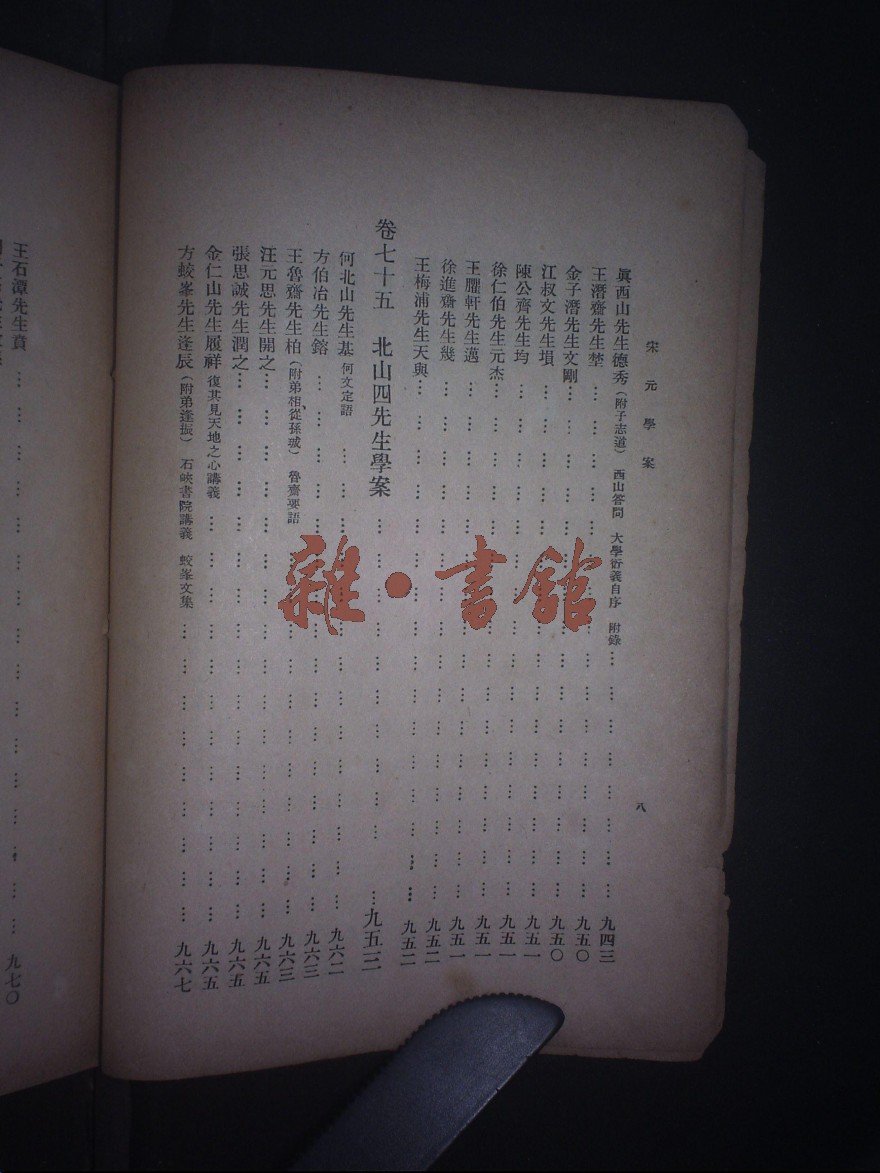 宋元學案
八
眞西山先生德秀（附子志道） 西山答問 大學衍義自序 附錄………………………九四三
王潛齋先生埜………………………九五〇
金子潛先生文剛………………………九五〇
江叔文先生塤………………………九五〇
陳公齊先生均………………………九五一
徐仁伯先生元杰………………………九五一
王臞軒先生邁………………………九五一
徐進齋先生幾………………………九五一
王梅浦先生天與………………………九五二
卷七十五 北山四先生學案………………………九五三
何北山先生基 何文定語………………………九六二
方伯冶先生鎔………………………九六三
王魯齋先生柏（附弟相、從孫瑊） 魯齋要語………………………九六三
汪元思先生開之………………………九六五
張思誠先生潤之………………………九六五
金仁山先生履祥 復其見天地之心講義………………………九六五
方蛟峯先生逢辰（附弟逢振） 石峽書院講義 蛟峯文集………………………九六七
王石潭先生賁………………………九七〇
雜·書館